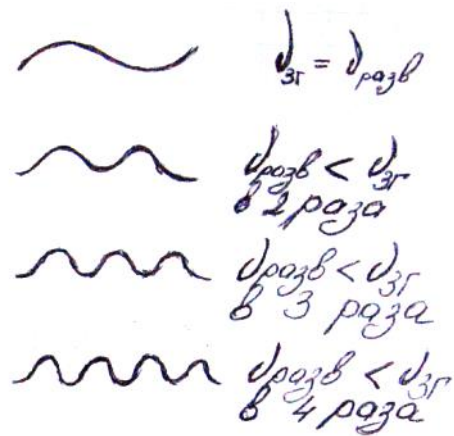 ν_зг = ν_разв
ν_разв < ν_зг
в 2 раза
ν_разв < ν_зг
в 3 раза
ν_разв < ν_зг
в 4 раза